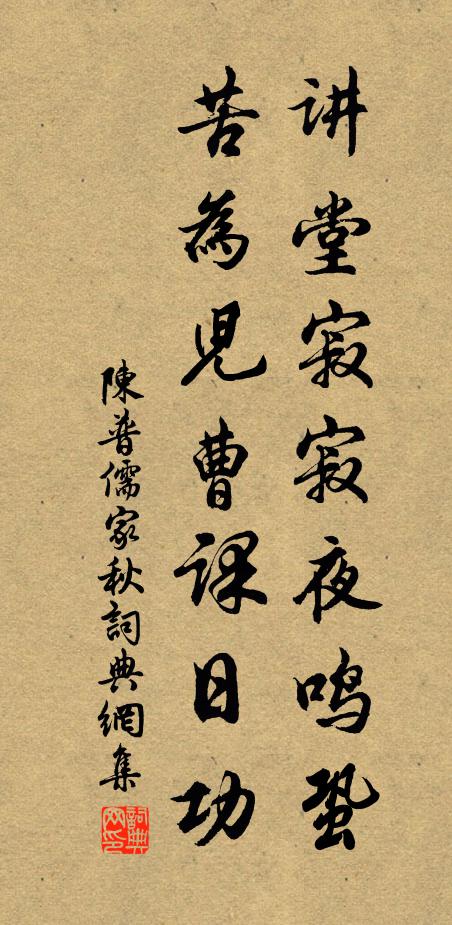 讲堂寂寂夜鸣蛩
苦為児曹課日功
陳普儒家秋詞典網集
詞典網印